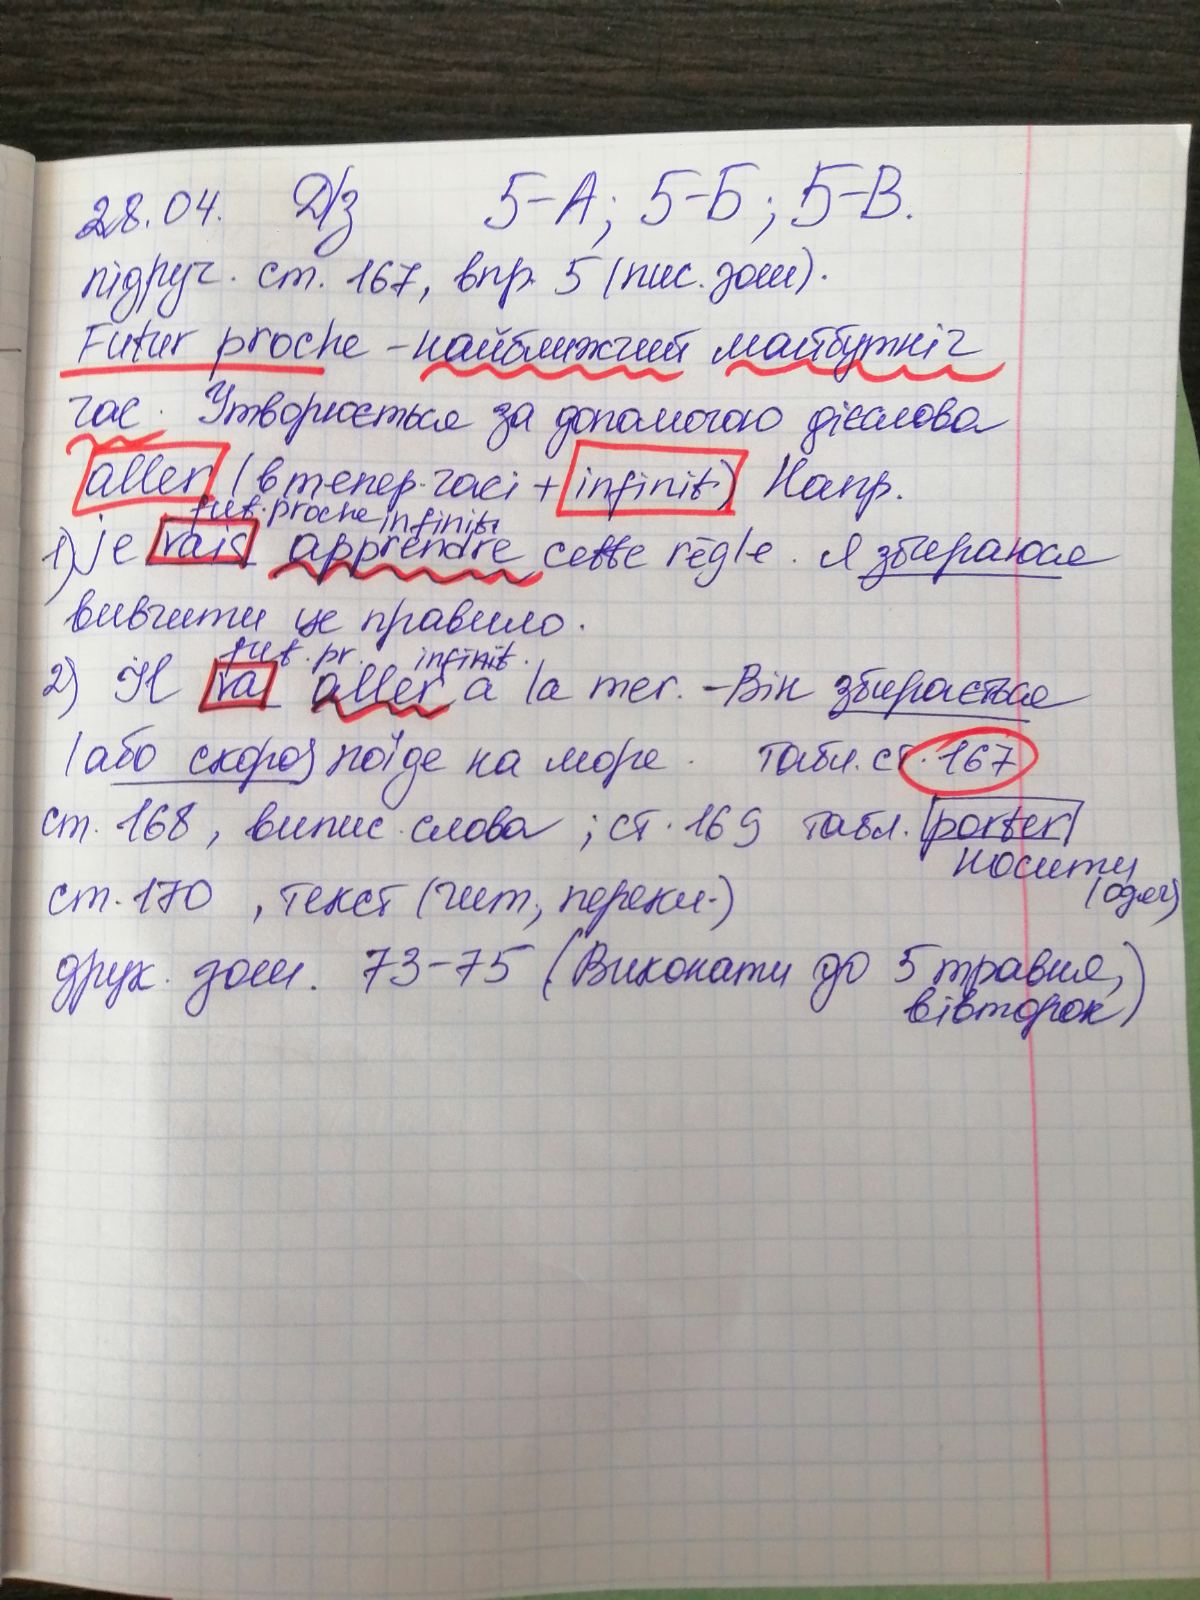 28.04. Д/з 5-А; 5-Б; 5-В.
підруч. ст. 167, впр. 5 (пис. зош).
Futur proche - найближчий майбутній
час. Утворюється за допомогою дієслова
aller (в тепер. часі + infinit) Напр.
fut. proche infinit.
1) je vais apprendre cette règle. Я збираюся
вивчити це правило.
fut. pr. infinit.
2) Il va aller à la mer. - Він збирається
(або скоро) поїде на море. табл. ст. 167
ст. 168, випис. слова; ст. 169 табл. porter
носити
(одяг)
ст. 170, текст (чит, перекл.)
друк. зош. 73-75 (Виконати до 5 травня,
вівторок)